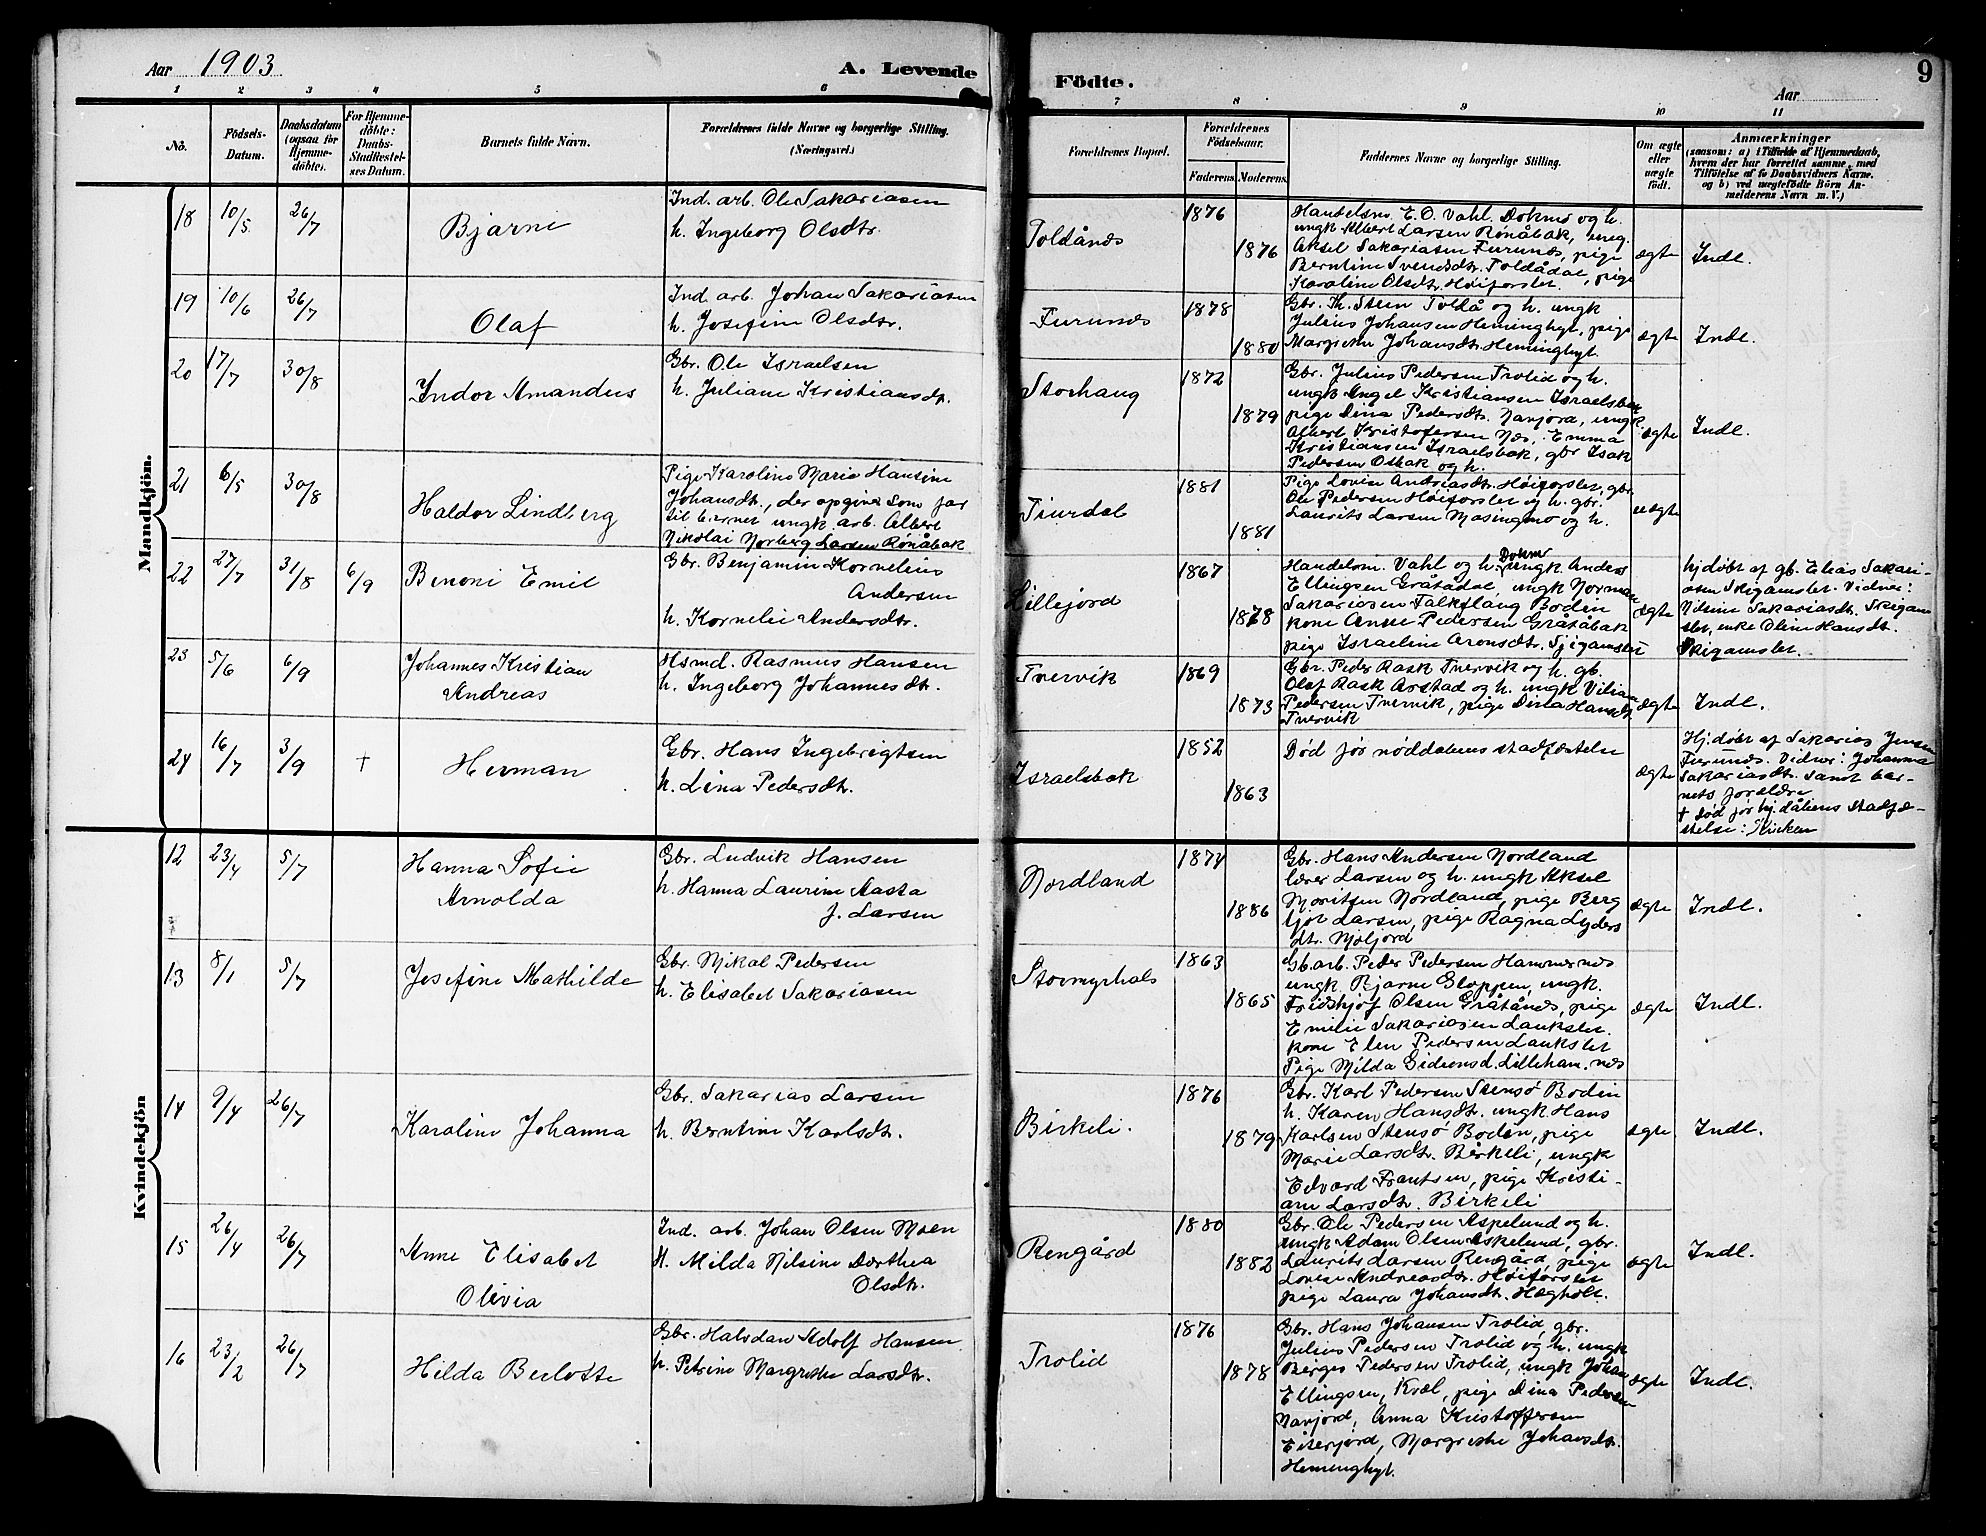 Aar 1903
A. Levende Födte.
9
Aar
1 2 3 4 5 6 7 8 9 10 11
No.
Födsels-Datum.
Daabsdatum (ogsaa for Hjemme-döbte).
For Hjemme-döbte: Daabs-Stadfæstel-ses Datum.
Barnets fulde Navn.
Forældrenes fulde Navne og borgerlige Stilling. (Næringsvei.)
Forældrenes Bopæl.
Forældrenes Födselsaar.
Faderens. Moderens.
Faddernes Navne og borgerlige Stilling.
Om ægte eller uægte födt.
Anmærkninger
(saasom: a) i Tilfælde af Hjemmedaab, hvem der har forrettet samme, med Tilföielse af to Daabsvidners Navne. og b) ved uægtefödte Börn An-melderens Navn m. V.)
Mandkjön.
18 10/5 26/7 Bjarne
Ind. arb. Ole Sakariasen
h. Ingeborg Olsdtr.
Toldånes 1876 1876
Handelsm. E. O. Vahl. Dokmo og h.
ungk Albert Larsen Rönåbak, ung.
Aksel Sakariasen Furunes, pige
Berntine Svendsdtr. Toldådal, pige
Karoline Olsdtr. Höiforslet.
ægte Indl.
19 10/6 26/7 Olaf
Ind. arb. Johan Sakariasen
h. Josefine Olsdtr.
Furunes 1878 1880
Gbr. Th. Steen Toldå og h. ungk
Julius Johansen Heminghyt, pige
Margrethe Johansdtr. Heminghyt.
ægte Indl.
20 17/7 30/8 Indor Amandus
Gbr. Ole Israelsen
h. Juliane Kristiansdt.
Storhaug 1872 1879
Gbr. Julius Pedersen Trolid og h.
ungk Angel Kristiansen Israelsbak
pige Dina Pedersdtr. Navjord, ungk.
Albert Kristofersen Næs, Emma
Kristiansen Israelsbak, gbr Isak
Pedersen Osbak og h.
ægte Indl.
21 6/5 30/8 Haldor Lindberg
Pige Karoline Marie Hansine
Johansdt., der opgiver som far
til barnet ungk. arb. Albert
Nikolai Norberg Larsen Rönåbak
Tiurdal 1881 1881
Pige Lovise Andreasdt. Höiforslet, gbr.
Ole Pedersen Höiforslet og h. gbr.
Laurits Larsen Masingmo og h.
uægte
22 27/7 31/8 6/9 Benoni Emil
Gbr. Benjamin Kornelius
Andersen
h. Kornelie Andersdtr.
Lillejord 1867 1878
Handelsm. Vahl og h. Dokmo ungk Anders
Ellingsen Gråtådal, ungk Norman
Sakariasen Falkflaug Bodin
kone Anne Pedersen Gråtåbak
pige Israeline Aronsdt.
ægte
hjdöbt af gb. Elias Sakari-
asen Skigamslet. Vidner:
Nilsine Sakariasdt. Skigam
slet, enke Oline Hansdt.
Skigamslet.
23 5/6 6/9 Johannes Kristian
Andreas
Hsmd. Rasmus Hansen
h. Ingeborg Johannesdt.
Tvervik 1869 1873
Gbr. Peder Rask Tvervik og h. gb.
Olaf Rask Arstad og h. ungk Viliam
Pedersen Tvervik, pige Dina Hansdt.
Tvervik
ægte Indl.
24 16/7 3/9 † Herman
Gbr. Hans Ingebrigtsen
h. Lina Pedersdtr.
Israelsbak 1852 1863
Död för nöddåbens stadfæstelse
ægte
Hjdöbt af Sakarias Jensen
Furunes. Vidner: Johanna
Sakariasdtr. samt bar-
nets forældre
† död för hj.dåbens stadfæ-
stelse i Kirken
Kvindekjön
12 23/4 5/7 Hanna Sofie
Arnolda
Gbr. Ludvik Hansen
h. Hanna Laurine Aasta
f. Larsen
Nordland 1874 1886
Gbr. Hans Andersen Nordland
lærer Larsen og h. ungk Aksel
Moritsen Nordland, pige Berg
ljot Larsen, pige Ragna Lyders
dtr. Njöljord
ægte Indl.
13 8/1 5/7 Josefine Mathilde
Gbr. Mikal Pedersen
h. Elisabet Sakariasen
Stormyrhals 1863 1865
Gb.arb. Peder Pedersen Hammernes
ungk. Bjarne Gloppen, ungk.
Fridthjof Olsen Gråtånes, pige
Emilie Sakariasen Laukslet.
kone Elen Pedersen Laukslet
Pige Milda Gideonsd. Lilleham.nes
ægte Indl.
14 9/4 26/7 Karoline Johanna
Gbr. Sakarias Larsen
h. Berntine Karlsdtr.
Birkeli. 1876 1879
Gbr. Karl Pedersen Stensö Bodin
h. Karen Hansdt. ungk Hans
Karlsen Stensö Bodin, pige
Marie Larsdt. Birkeli, ungk
Edvard Frantsen, pige Kristi-
ane Larsdtr. Birkeli
ægte Indl.
15 26/4 26/7 Anne Elisabet
Olivia
Ind. arb. Johan Olsen Moen
H. Milda Nilsine Dorthea
Olsdtr.
Rengård 1880 1882
Gbr. Ole Pedersen Aspelund og h.
ungk Adam Olsen Askelund, gbr.
Laurits Larsen Rengård, pige
Lovise Andreasdt. Höiforslet
pige Laura Johansdt. Hægholt.
ægte Indl.
16 23/2 26/7 Hilda Berlotte
Gbr. Halvdan Adolf Hansen
h. Petrine Margrethe Larsdtr.
Trolid 1876 1878
Gbr. Hans Johansen Trolid, gbr.
Julius Pedersen Trolid og h. ungk
Birger Pedersen Trolid, ungk Johan
Ellingsen, Kvæl, pige Dina Pedersen
Navjord, Anna Kristoffersen
Eiterjord, Margrethe Johansdt.
Heminghyt.
ægte Indl.